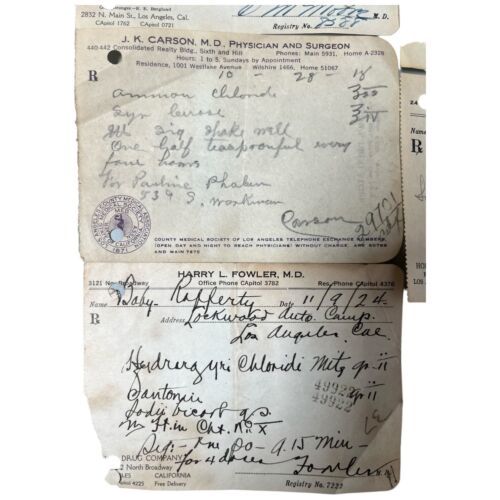 2832 N. Main St., Los Angeles, Cal.
CApitol 1762 CApitol 0721
M.D.
Registry No.
J. K. CARSON, M.D. PHYSICIAN AND SURGEON
440-442 Consolidated Realty Bldg., Sixth and Hill Phones: Main 5931, Home A-2328
Hours: 1 to 5, Sundays by Appointment
Residence, 1001 Westlake Avenue Wilshire 1466, Home 51067
℞ 10 - 28 - 18
Ammon Chloride
Syr
M Sig Shake well
One half teaspoonful every
four hours
For Pauline
539 S. Workman
Carson
COUNTY MEDICAL SOCIETY OF LOS ANGELES TELEPHONE EXCHANGE NUMBERS
(OPEN DAY AND NIGHT TO REACH PHYSICIANS) WITHOUT CHARGE, ARE
AND MAIN 7875
HARRY L. FOWLER, M.D.
3121 No. Broadway Office Phone CApitol 3782 Res. Phone CApitol 4376
Name Baby Rafferty Date 11/9/24
℞ Address Lockwood Auto. Camp.
Los Angeles, Cal
Hydrargyri Chloridi Mitis gr. ii
Santonin gr ii
49922
49922
Sodii bicarb q.s.
M Ft. in Cht. No. X
Sig: One po q. 15 min
for 4 doses Fowler
DRUG COMPANY
North Broadway
CALIFORNIA
4225 Free Delivery
Registry No. 7222